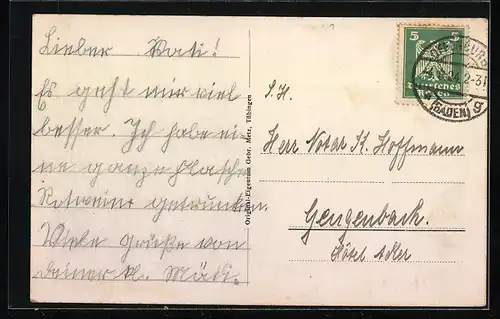 Lieber Vati!
Es geht mir viel
besser. Ich habe ei-
ne ganze Flasche
Rotwein getrunken.
Viele Grüße von
deiner kl. Mädi.
Original-Eigentum Gebr. Metz, Tübingen
5 5
Deutsches
Reich
(BADEN)
S. H.
Herr Notar K. Hoffmann
Gengenbach.
Hotel Adler